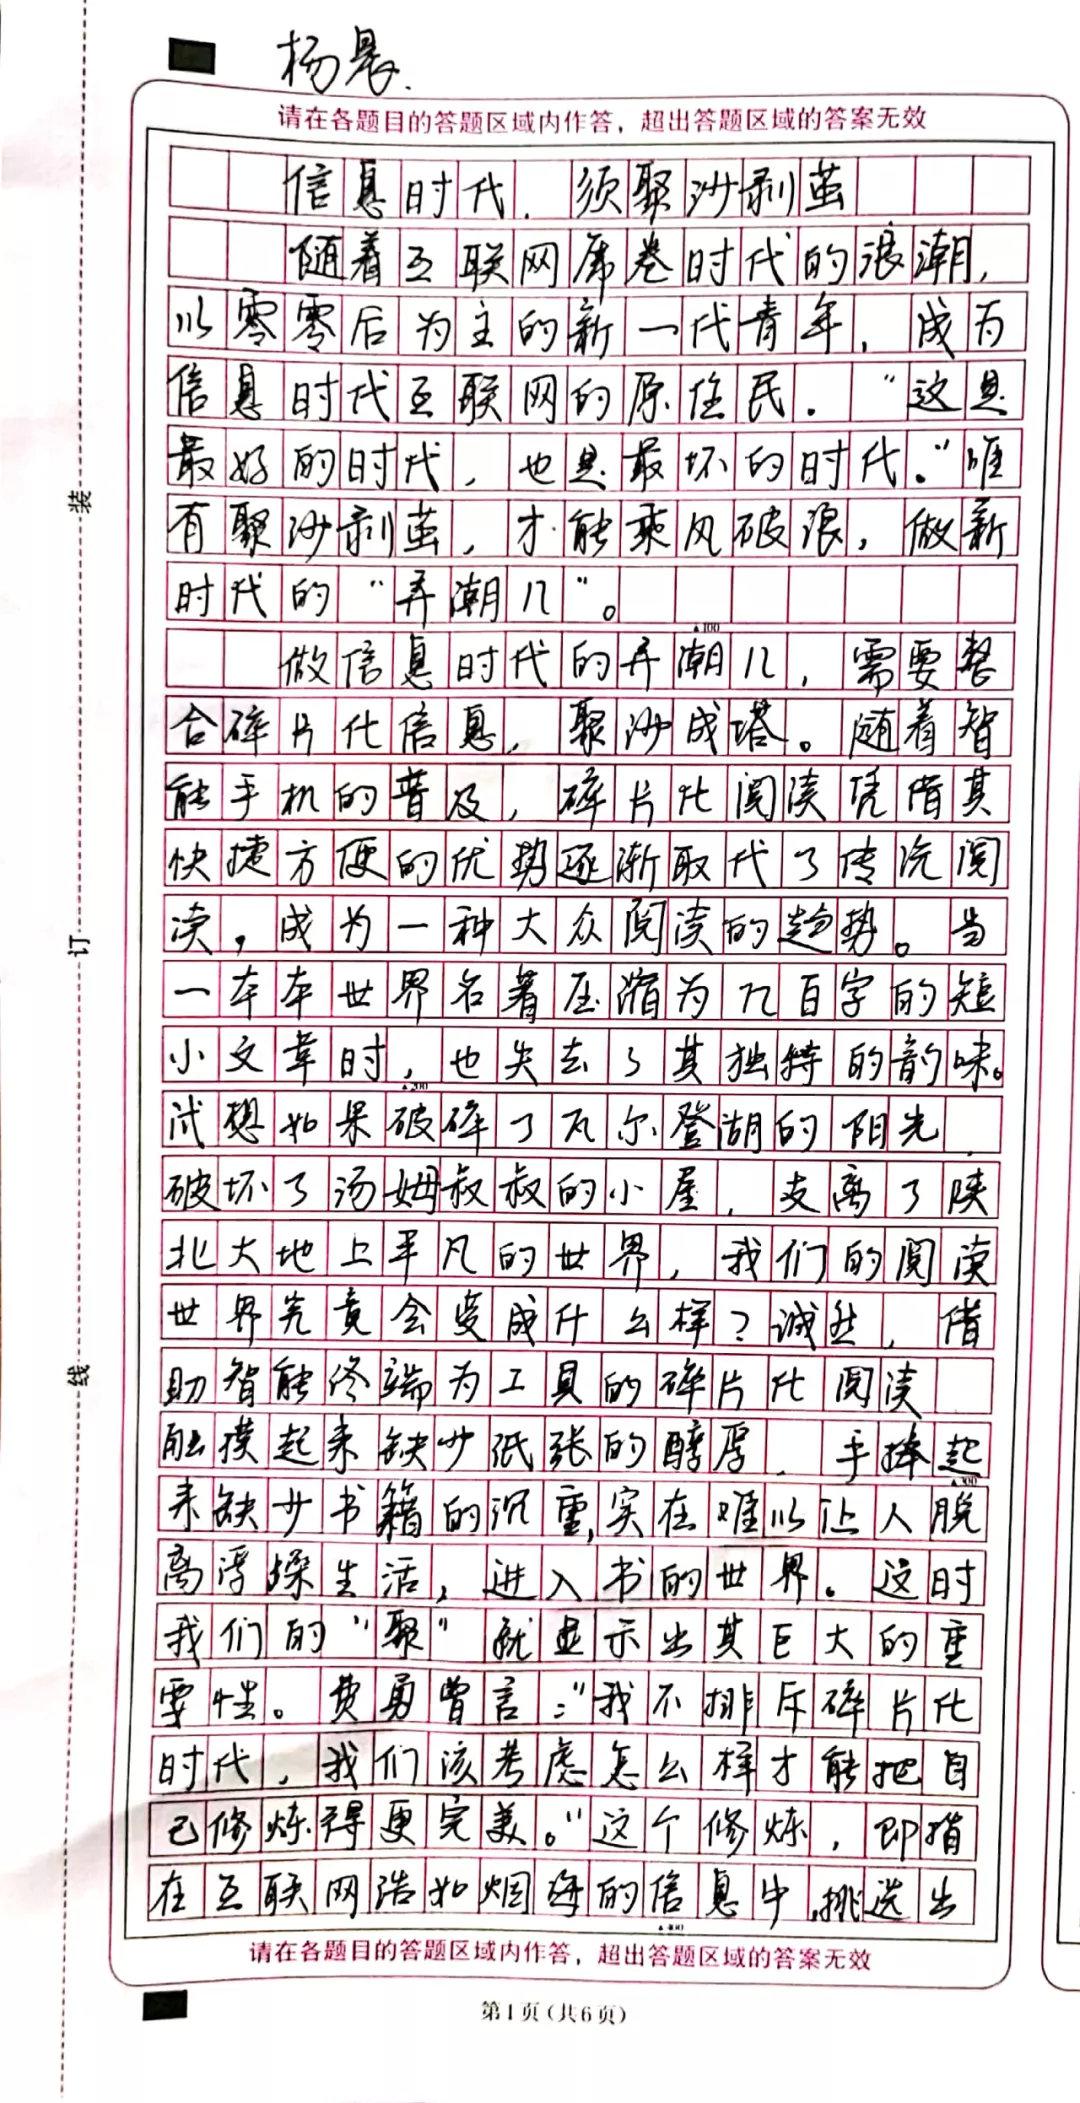 杨晨.
请在各题目的答题区域内作答，超出答题区域的答案无效
信息时代，须聚沙剥茧
随着互联网席卷时代的浪潮，
以零零后为主的新一代青年，成为
信息时代互联网的原住民。“这是
最好的时代，也是最坏的时代。”唯
有聚沙剥茧，才能乘风破浪，做新
时代的“弄潮儿”。
▲100
做信息时代的弄潮儿，需要整
合碎片化信息，聚沙成塔。随着智
能手机的普及，碎片化阅读凭借其
快捷方便的优势逐渐取代了传统阅
读，成为一种大众阅读的趋势。当
一本本世界名著压缩为几百字的短
小文章时，也失去了其独特的韵味。
▲200
试想如果破碎了瓦尔登湖的阳光，
破坏了汤姆叔叔的小屋，支离了陕
北大地上平凡的世界，我们的阅读
世界究竟会变成什么样？诚然，借
助智能终端为工具的碎片化阅读
触摸起来缺少纸张的醇厚，手捧起
▲300
来缺少书籍的沉重，实在难以让人脱
离浮躁生活，进入书的世界。这时
我们的“聚”就显示出其巨大的重
要性。费勇曾言：“我不排斥碎片化
时代，我们该考虑怎么样才能把自
己修炼得更完美。”这个修炼，即指
在互联网浩如烟海的信息中，挑选出
▲400
请在各题目的答题区域内作答，超出答题区域的答案无效
第1页（共6页）
装
订
线